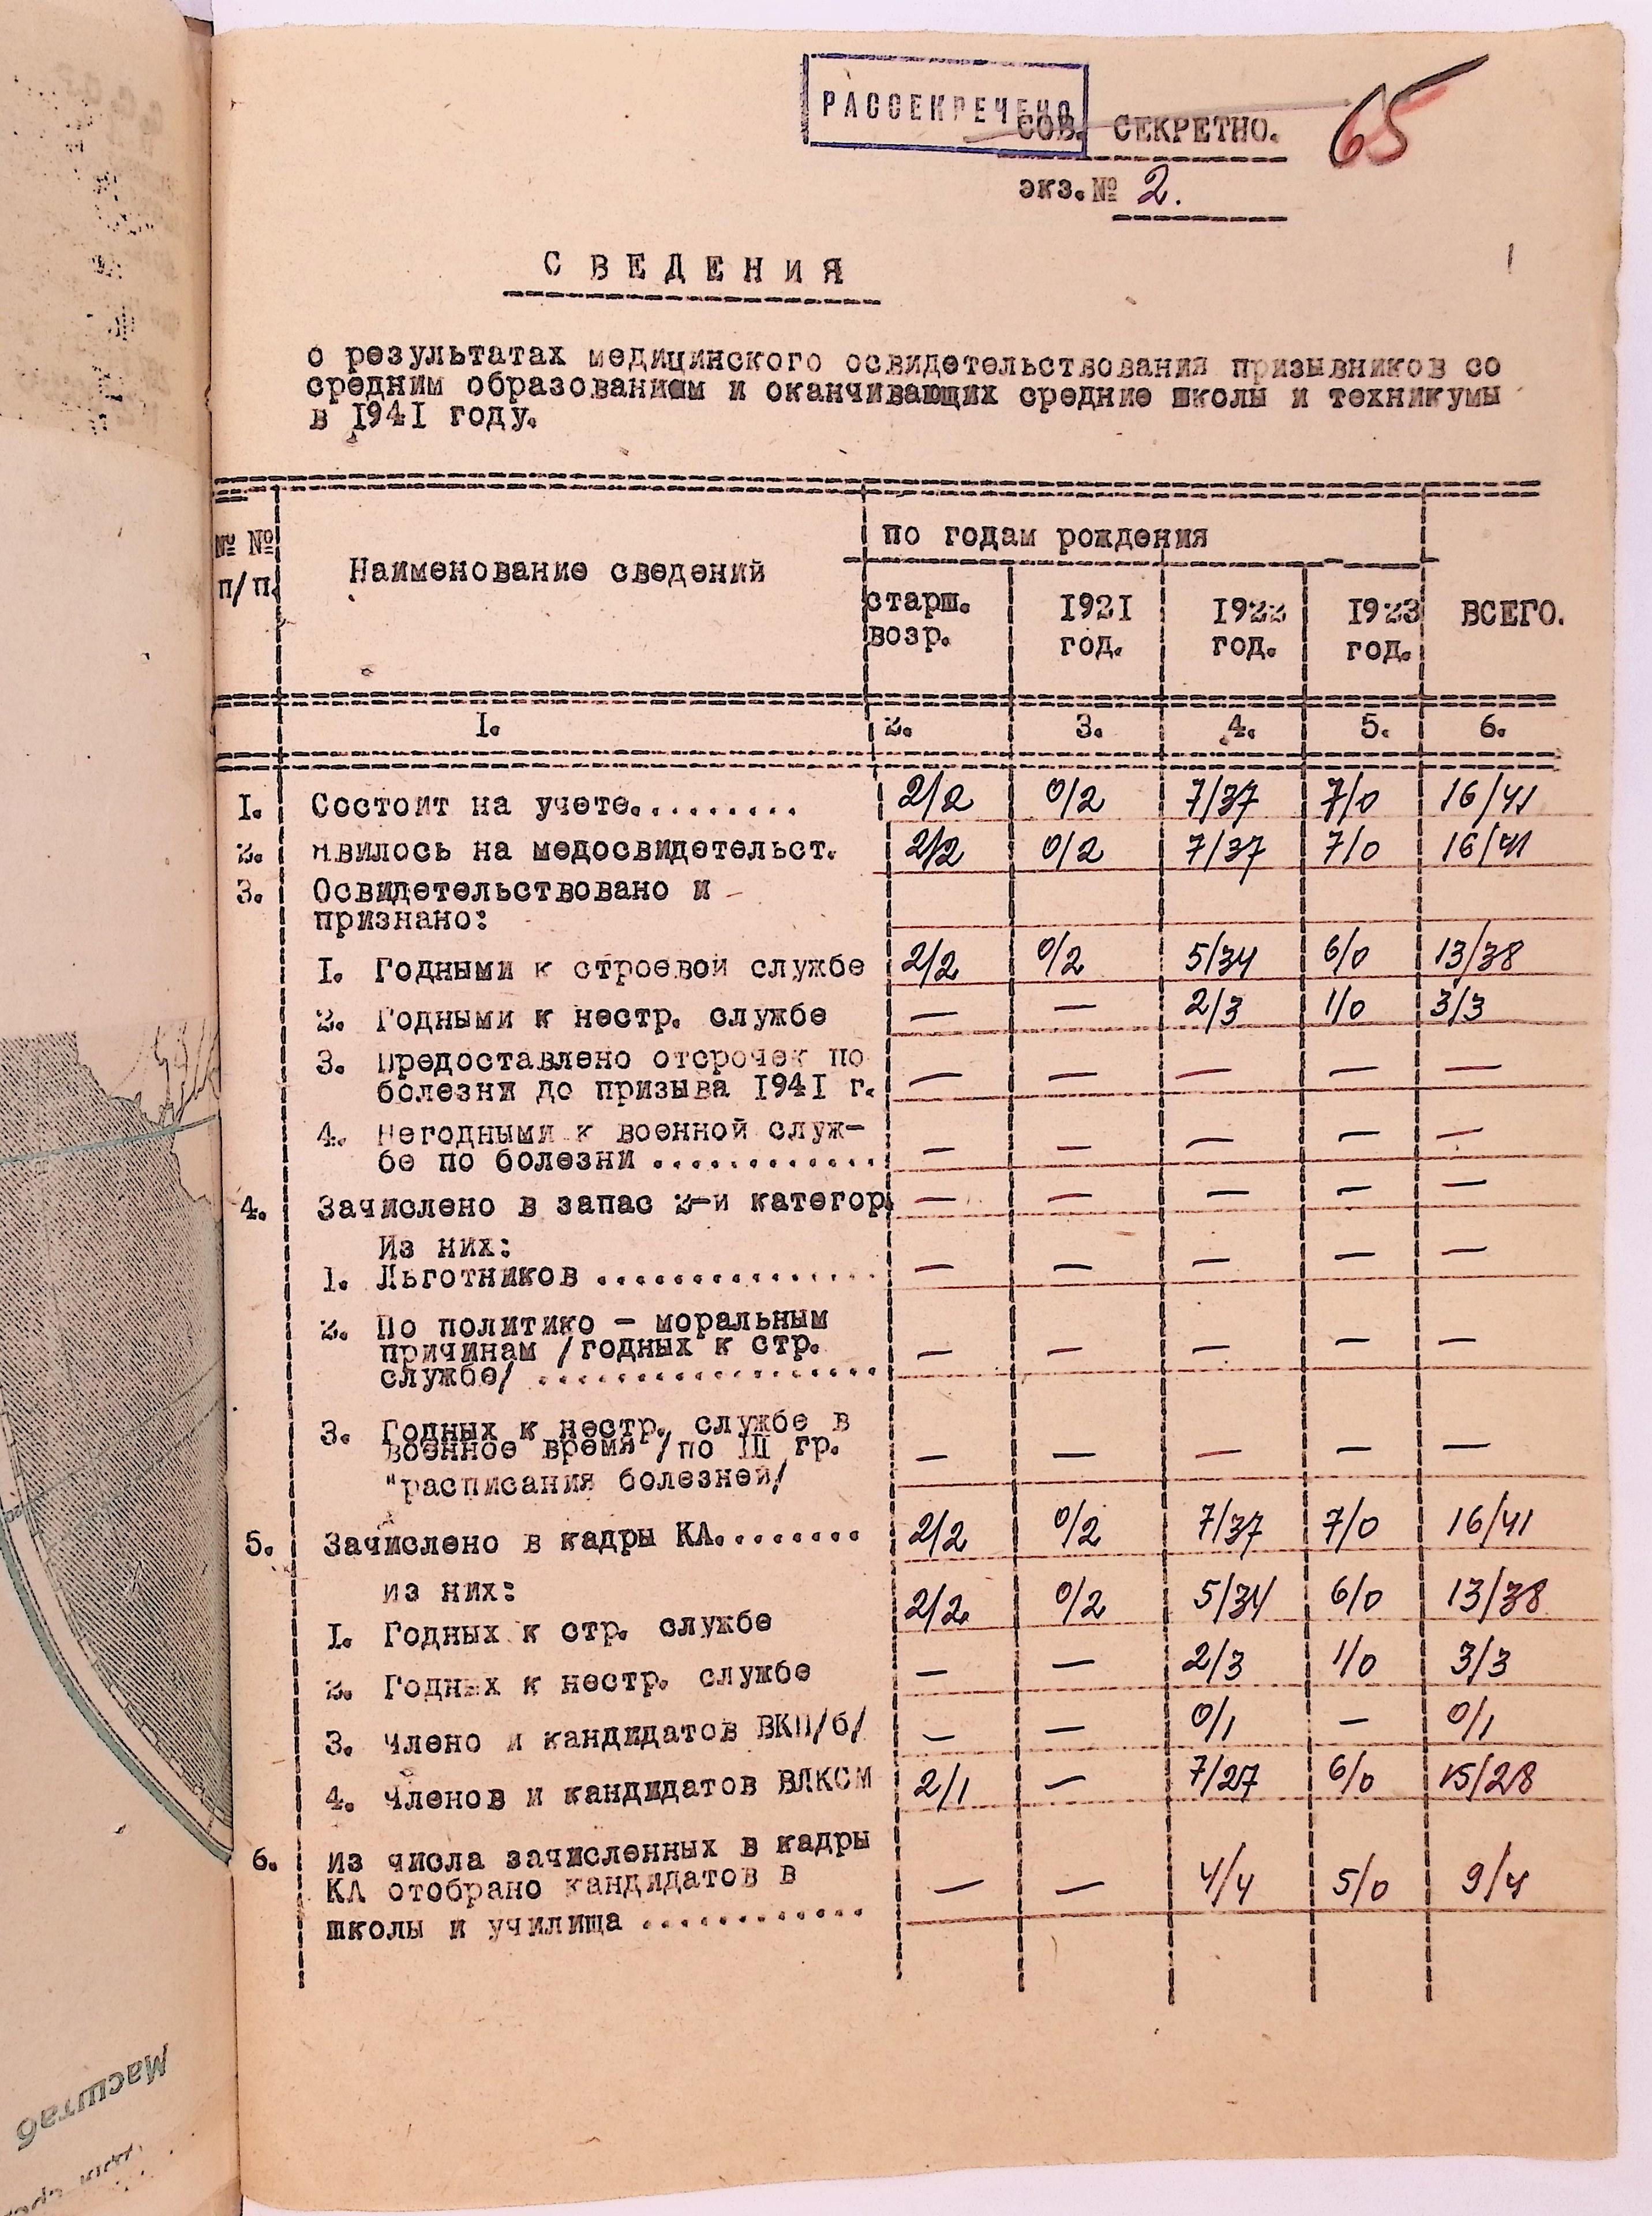 РАССЕКРЕЧЕНО
СОВ. СЕКРЕТНО.
65
экз.№ 2.
СВЕДЕНИЯ
о результатах медицинского освидетельствования призывников со
средним образованием и оканчивающих средние школы и техникумы
в 1941 году.
№ № п/п. Наименование сведений по годам рождения ВСЕГО.
старш. возр. 1921 год. 1922 год. 1923 год.
I. 2. 3. 4. 5. 6.
I. Состоит на учете......... 2/2 0/2 7/37 7/0 16/41
2. Явилось на медосвидетельст. 2/2 0/2 7/37 7/0 16/41
3. Освидетельствовано и
признано:
I. Годными к строевой службе 2/2 0/2 5/34 6/0 13/38
2. Годными к нестр. службе — — 2/3 1/0 3/3
3. Предоставлено отсрочек по
болезни до призыва 1941 г. — — — — —
4. Негодными к военной служ-
бе по болезни ............ — — — — —
4. Зачислено в запас 2-й категор. — — — — —
Из них:
1. Льготников ............... — — — — —
2. По политико - моральным
причинам /годных к стр.
службе/ .................. — — — — —
3. Годных к нестр. службе в
военное время /по III гр.
"расписания болезней/ — — — — —
5. Зачислено в кадры КА........ 2/2 0/2 7/37 7/0 16/41
из них:
I. Годных к стр. службе 2/2 0/2 5/34 6/0 13/38
2. Годных к нестр. службе — — 2/3 1/0 3/3
3. члено и кандидатов ВКП/б/ — — 0/1 — 0/1
4. членов и кандидатов ВЛКСМ 2/1 — 7/27 6/0 15/28
6. Из числа зачисленных в кадры
КА отобрано кандидатов в
школы и училища ............ — — 4/4 5/0 9/4
Масштаб